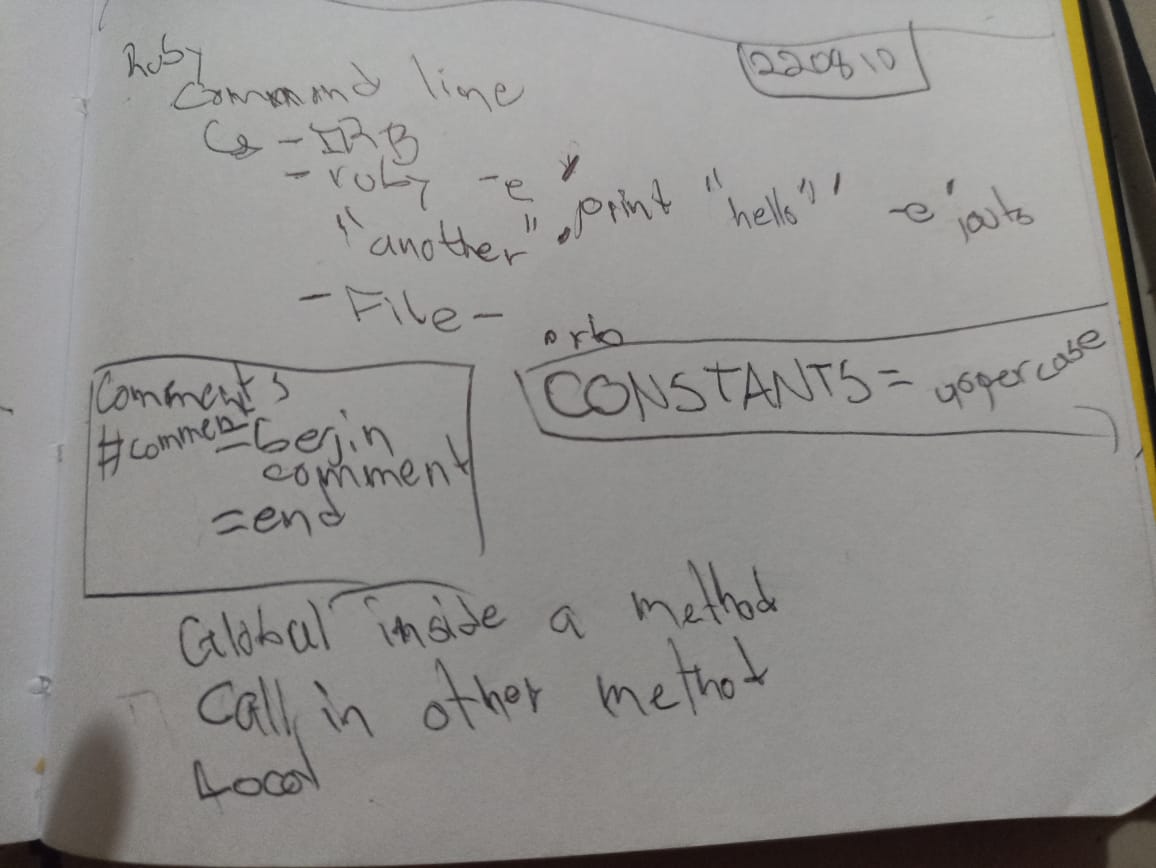 Ruby
220810
Command line
- IRB
- ruby -e ' print "hello"' -e 'puts
"another"
- File -
.rb
Comments
#commen =begin
comment
=end
CONSTANTS = uppercase
Global inside a method
Call in other method
Local